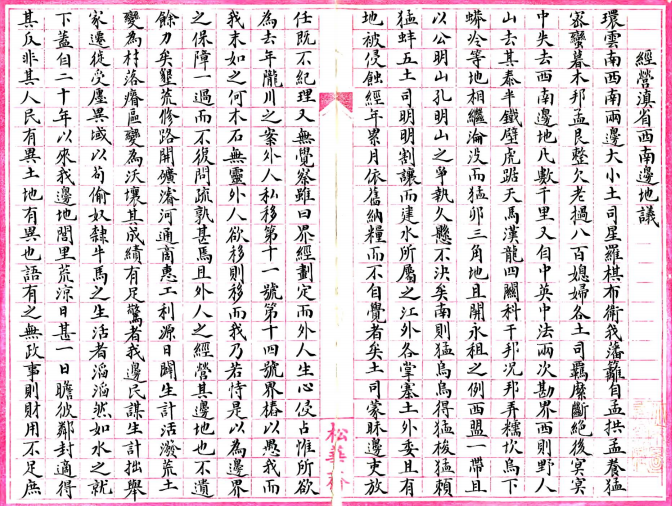 經營滇省西南邊地議
環雲南西南兩邊大小土司星羅棋布衛我藩籬自孟拱孟養猛
密蠻暮木邦孟艮整欠老撾八百媳婦各土司羈縻斷絕後冥冥
中失去西南邊地凡數千里又自中英中法兩次勘界西則野人
山去其泰半鐵壁虎踞天馬漢龍四關科干邦况邦弄糯坎馬下
蟒冷等地相繼淪没而猛卯三角地且開永租之例西盟一帶且
以公明山孔明山之爭執久懸不決矣南則猛烏烏得猛梭猛賴
猛蚌五土司明明割讓而建水所屬之江外各掌寨土外委且有
地被侵蝕經年累月依舊納糧而不自覺者矣土司蒙昧邊吏放
任既不紀理又無覺察雖曰界經劃定而外人生心侵占惟所欲
為去年隴川之案外人私移第十一號第十四號界樁以愚我而
我末如之何木石無靈外人欲移則移而我乃若恃是以為邊界
之保障一過而不復問疏孰甚焉且外人之經營其邊地也不遺
餘力矣墾荒修路開礦濬河通商惠工利源日闢生計活潑荒土
變為村落瘠區變為沃壤其成績有足驚者我邊民謀生計拙舉
家遷徙受廛異域以苟偷奴隸牛馬之生活者滔滔然如水之就
下蓋自二十年以來我邊地閭里荒涼日甚一日瞻彼鄰封適得
其反非其人民有異土地有異也語有之無政事則財用不足庶
松華齋